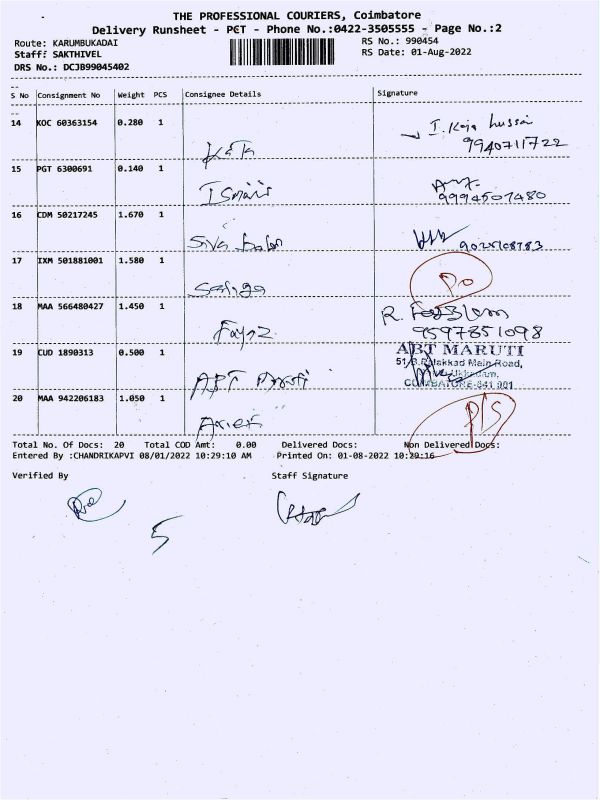 THE PROFESSIONAL COURIERS, Coimbatore
Delivery Runsheet - PCT - Phone No.:0422-3505555 - Page No.:2
Route: KARUMBUKADAI
RS No.: 990454
Staff: SAKTHIVEL
RS Date: 01-Aug-2022
DRS No.: DCJB99045402
S No Consignment No Weight PCS Consignee Details Signature
14 KOC 60363154 0.280 1
I. Kaja hussai
9940711722
15 PGT 6300691 0.140 1
9994507480
16 CDM 50217245 1.670 1
Siva balan
17 IXM 501881001 1.580 1
18 MAA 566480427 1.450 1
Fayaz
9597851098
19 CUD 1890313 0.500 1
ABT MARUTI
Palakkad Main Road,
Ukkadam,
COIMBATORE-641 001
ABT Maruti
20 MAA 942206183 1.050 1
Total No. Of Docs: 20 Total COD Amt: 0.00 Delivered Docs: Non Delivered Docs:
Entered By :CHANDRIKAPVI 08/01/2022 10:29:10 AM Printed On: 01-08-2022 10:29:16
Verified By Staff Signature
5